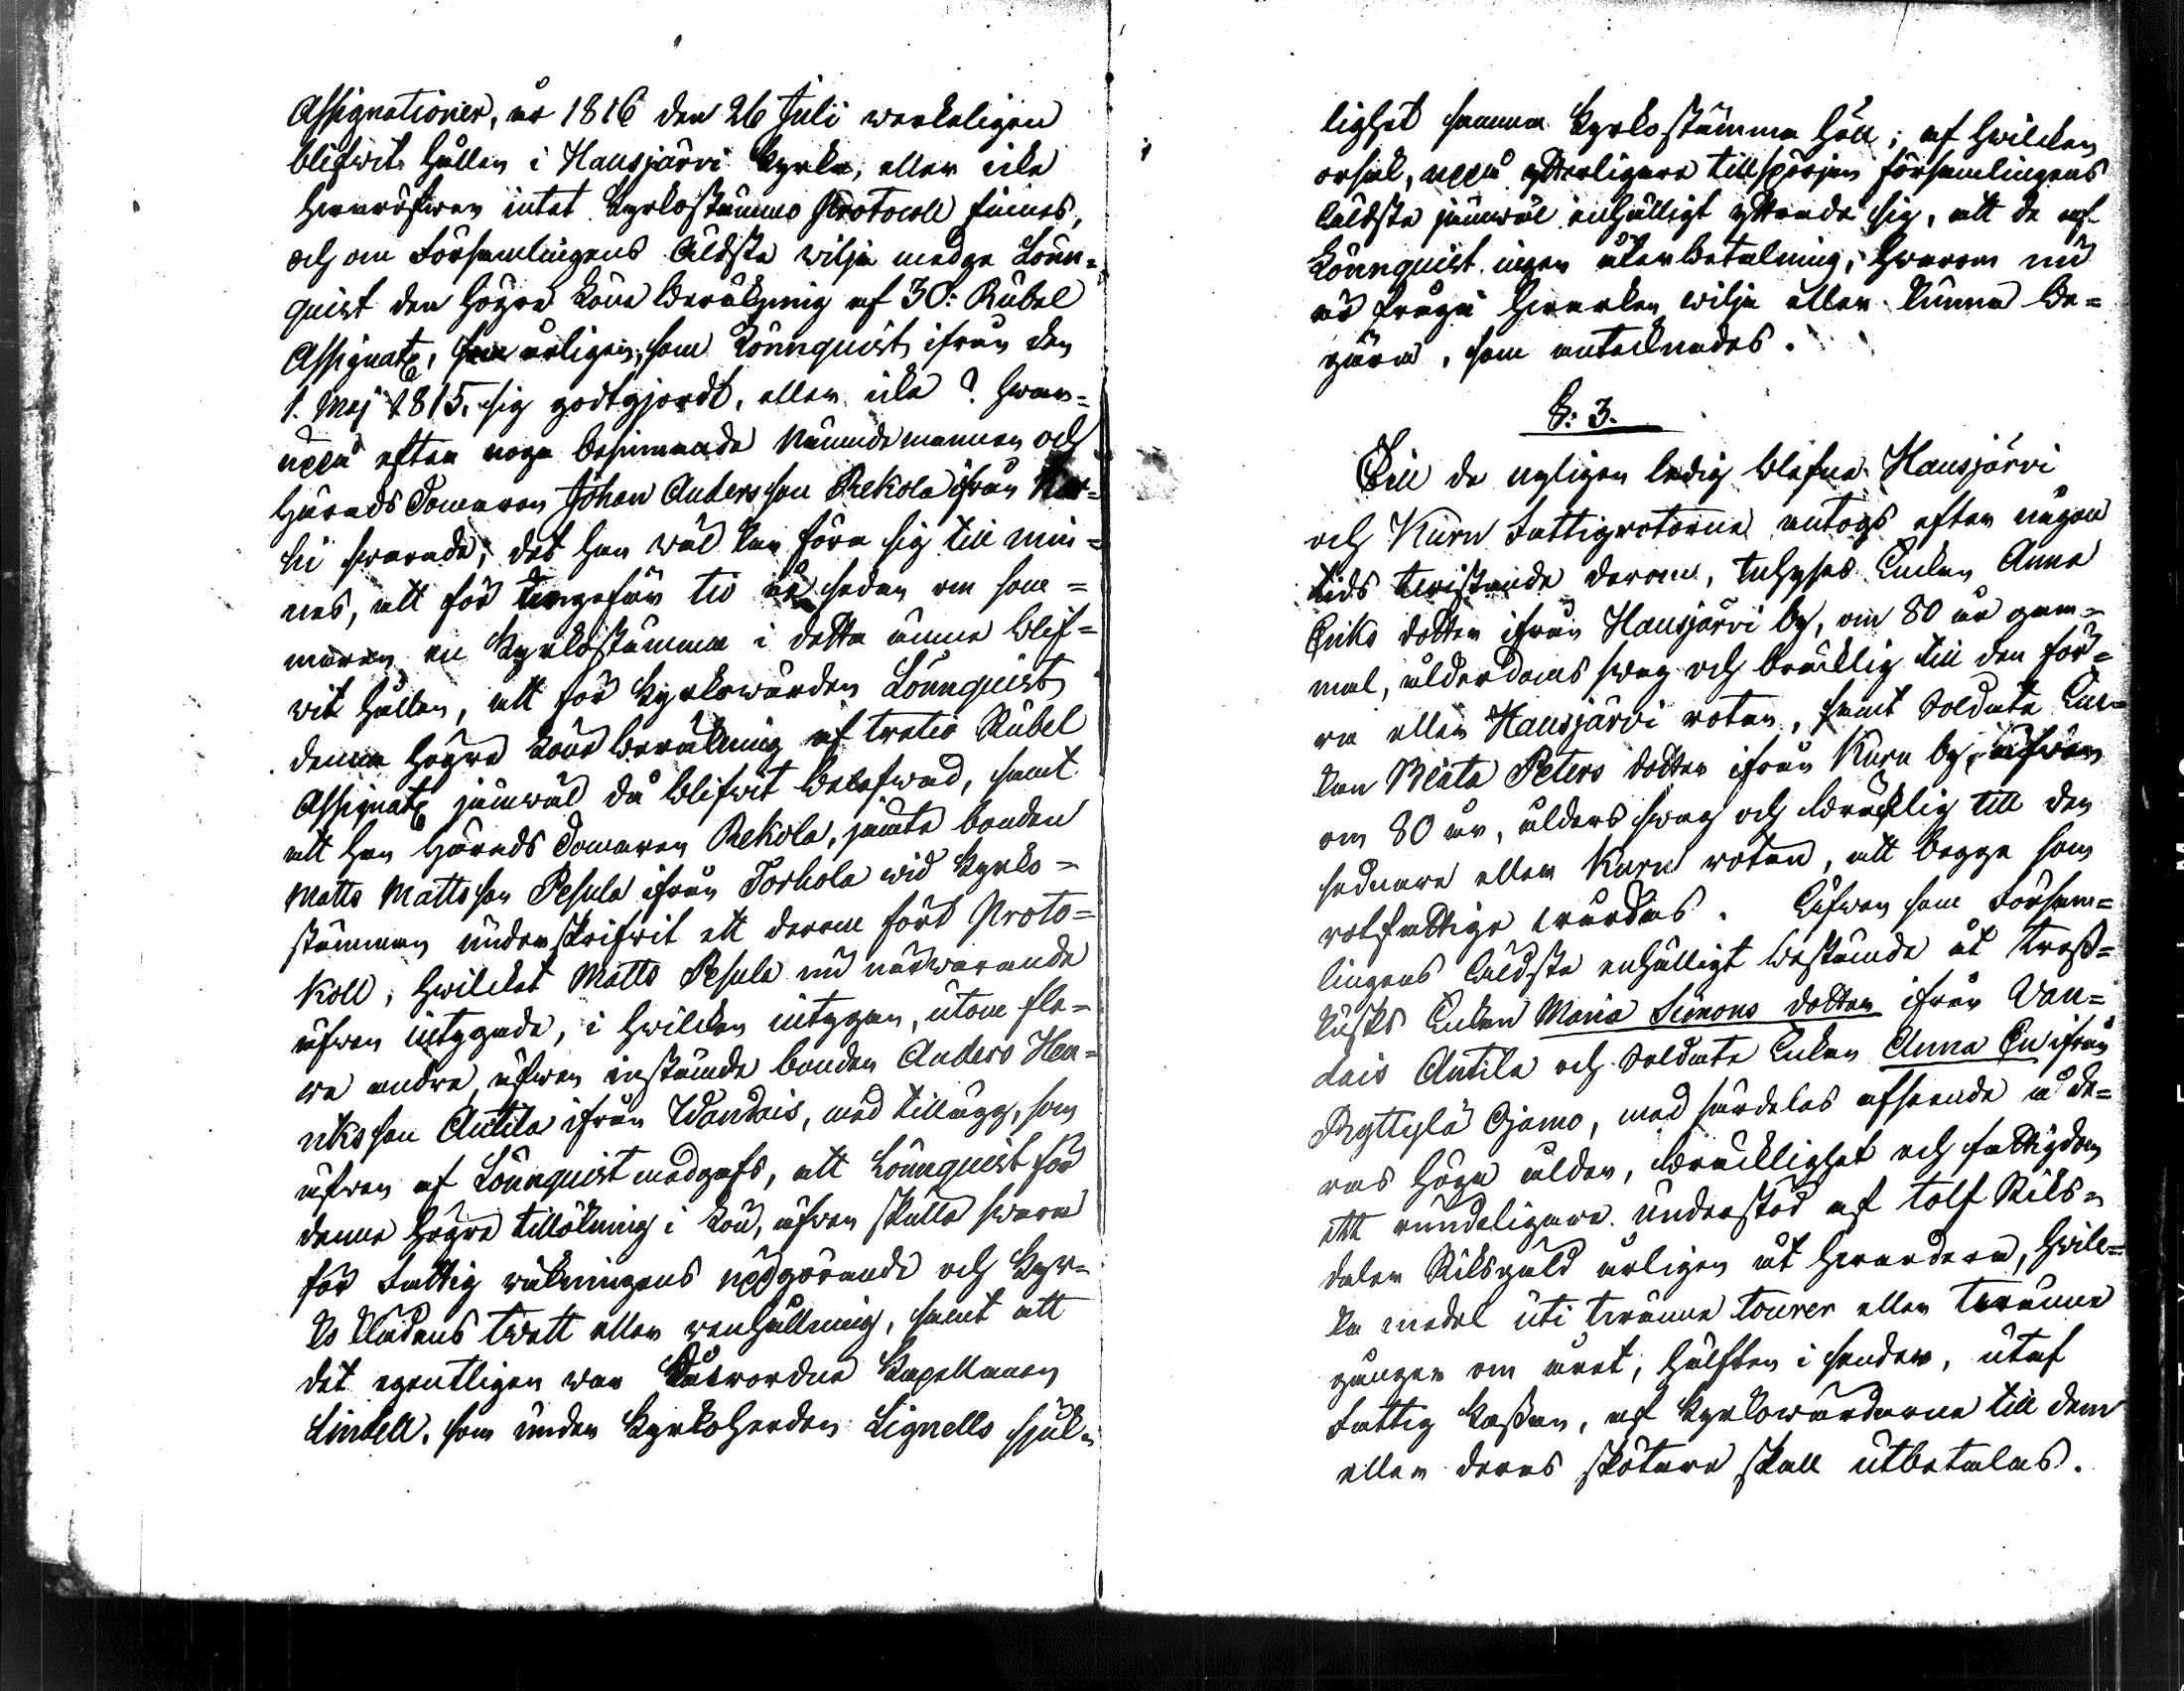 Assignationer, år 1816 den 26 Juli werkeligen
blifwit hållen i Hausjärvi Kyrka, eller icke
hwaröfwer intet Kyrkostämmo Protocoll finnes,
och om Församlingens Äldste wilja medge Lönn=
quist den högre Löne beräkning af 30: Rubel
Assignat, årligen, som Lönnquist ifrån den
1. Maj 1815. sig godtgjordt, eller icke? hwar=
uppå efter noga besinnande Nämndemannen och
Härads Domaren Johan Andersson Rekola ifrån Kar=
hi swarade, det han wäl kan föra sig till min=
nes, att för ungefär tio år sedan om som=
maren en Kyrkostämma i detta ämne blif=
wit hållen, att för Kyrkowärden Lönnquist
denna högre Löne beräkning af tretio Rubel
Assignat jämwäl då blifwit belefwad, samt
att han Härads Domaren Rekola, jämte bonden
Matts Mattsson Pesula ifrån Torhola wid Kyrko=
stämman underskrifwit ett derom fört Proto=
koll, hwilcket Matts Pesula nu närwarande
äfwen intygade, i hwilcken intygan, utom fle=
re andre, äfwen instämde bonden Anders Hen=
riksson Antila ifrån Wandais, med tillägg, som
äfwen af Lönnquist medgafs, att Lönnquist för
denna högre tillökning i Lön, äfwen skulle swara
för Fattig räkningens uppgörande och Kyr=
ko klädens twätt eller renhållning, samt att
det egentligen war Kapellanen
Lindell, som under Kyrkoherden Lignells sjuk=
lighet samma Kyrkostämma höll; af hwilcken
orsak, uppå ytterligare tillspörjan församlingens
Äldste jämwäl enhälligt yttrade sig, att de af
Lönnquist ingen återbetalning, hwarom nu
är fråga hwarken wilja eller kunna be=
gära, som antecknades.
§: 3.
Till de nyligen ledig blefne Hausjärvi
och Kuru Fattigrotorne antogs efter någon
tids twistande derom, Inhyses Enkan Anna
Eriks dotter ifrån Hausjärvi by, om 80 år gam=
mal, ålderdoms swag och bräcklig till den för=
ra eller Hausjärvi rotan, samt Soldats En=
kan Beata Peters dotter ifrån Kuru by, äfwen
om 80 år, ålders swag och bräcklig till den
sednare eller Kuru rotan, att begge som
rotfattige wårdas. Äfwen som Försam=
lingens Äldste enhälligt bestämde åt Tross=
kusks Enkan Maria Simons dotter ifrån Wan=
dais Antila och Soldats Enkan Anna En ifrån
Ryttylä Ojamo, med särdeles afseende å de=
ras höga ålder, bräcklighet och fattigdom
ett rundeligare understöd af tolf Riks=
daler Riksgäld årligen åt hwardera, hwil=
ka medel uti twänne tourer eller twänne
gånger om året, hälften i sender, utaf
Fattig Kassan, af Kyrkowärdarne till dem
eller deras skötare skall utbetalas.